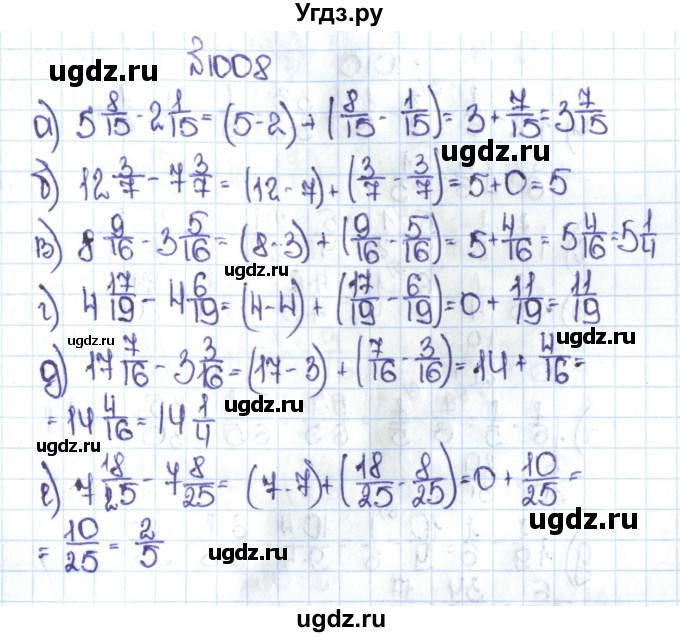 Угдз.ру
№1008
ugdz.ru
а) 5 8/15 - 2 1/15 = (5-2) + (8/15 - 1/15) = 3 + 7/15 = 3 7/15
ugdz.ru
б) 12 3/7 - 7 3/7 = (12-7) + (3/7 - 3/7) = 5+0=5
в) 8 9/16 - 3 5/16 = (8-3) + (9/16 - 5/16) = 5 + 4/16 = 5 4/16 = 5 1/4
ugdz.ru
г) 4 17/19 - 4 6/19 = (4-4) + (17/19 - 6/19) = 0 + 11/19 = 11/19
ugdz.ru ugdz.ru
д) 17 7/16 - 3 3/16 = (17-3) + (7/16 - 3/16) = 14 + 4/16 =
= 14 4/16 = 14 1/4
ugdz.ru
ugdz.ru
е) 7 18/25 - 7 8/25 = (7-7) + (18/25 - 8/25) = 0 + 10/25 =
ugdz.ru
= 10/25 = 2/5
ugdz.ru
ugdz.ru